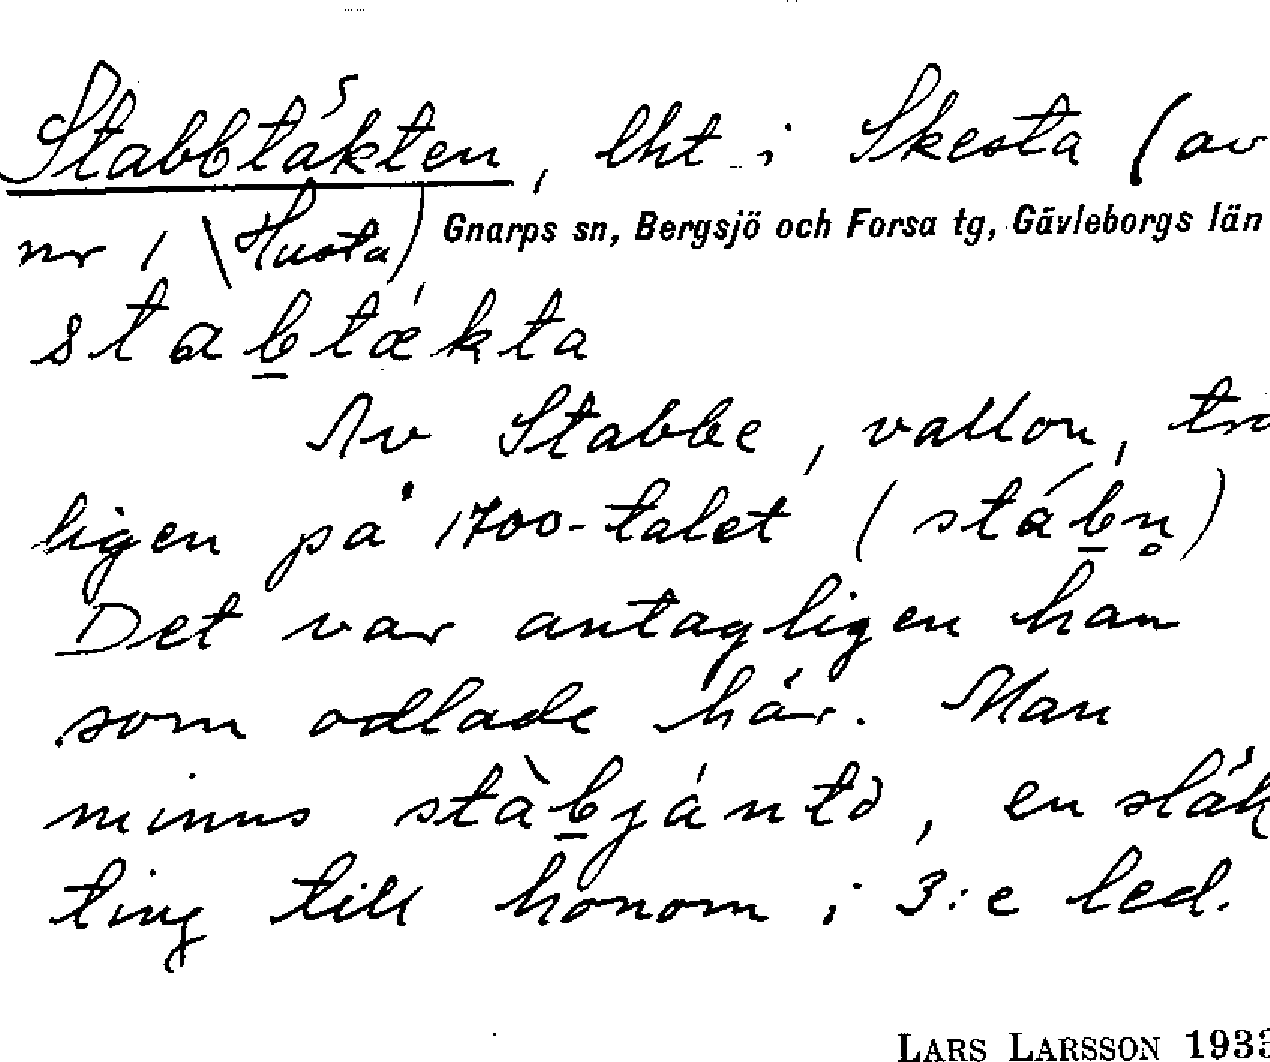 Stabbtäkten, lht i Skesta (av
nr 1 \ Husta) Gnarps sn, Bergsjö och Forsa tg, Gävleborgs län
stabtækta
Av Stabbe, vallon, tro
ligen på 1700-talet (stábn̥)
Det var antagligen han
som odlade här. Man
minns stàbjántò, en släk
ting till honom i 3:e led.
LARS LARSSON 1933